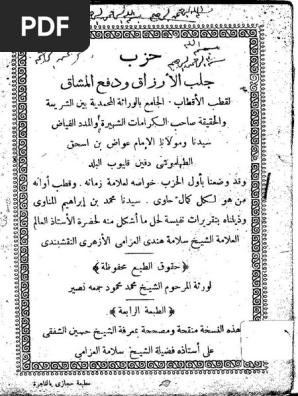 PDF
حزب
جلب الأرزاق ودفع المشاق
لقطب الأقطاب الجامع بالوراثة المحمدية بين الشريعة
والحقيقة صاحب الكرامات الشهيرة والمدد الفياض
سيدنا ومولانا الإمام عواض بن اسحق
دفين قليوب البلد
وقد وضعنا بأول الحزب خواصه لعلامة زمانه . وقطب أوانه
من هو لكل كمال حاوى . سيدنا محمد بن إبراهيم المناوى
وذيلناه بتقريرات نفيسة لحل ما أشكل منه لحضرة الأستاذ العالم
العلامة الشيخ سلامة هندى العزامى الأزهرى النقشبندى
﴿ حقوق الطبع محفوظة ﴾
لورثة المرحوم الشيخ محمد محمود جمعه نصير
﴿ الطبعة الرابعة ﴾
هذه النسخة منقحة ومصححة بمعرفة الشيخ حسين الشفقى
على أستاذه فضيلة الشيخ سلامة العزامى
مطبعة حجازى بالقاهرة